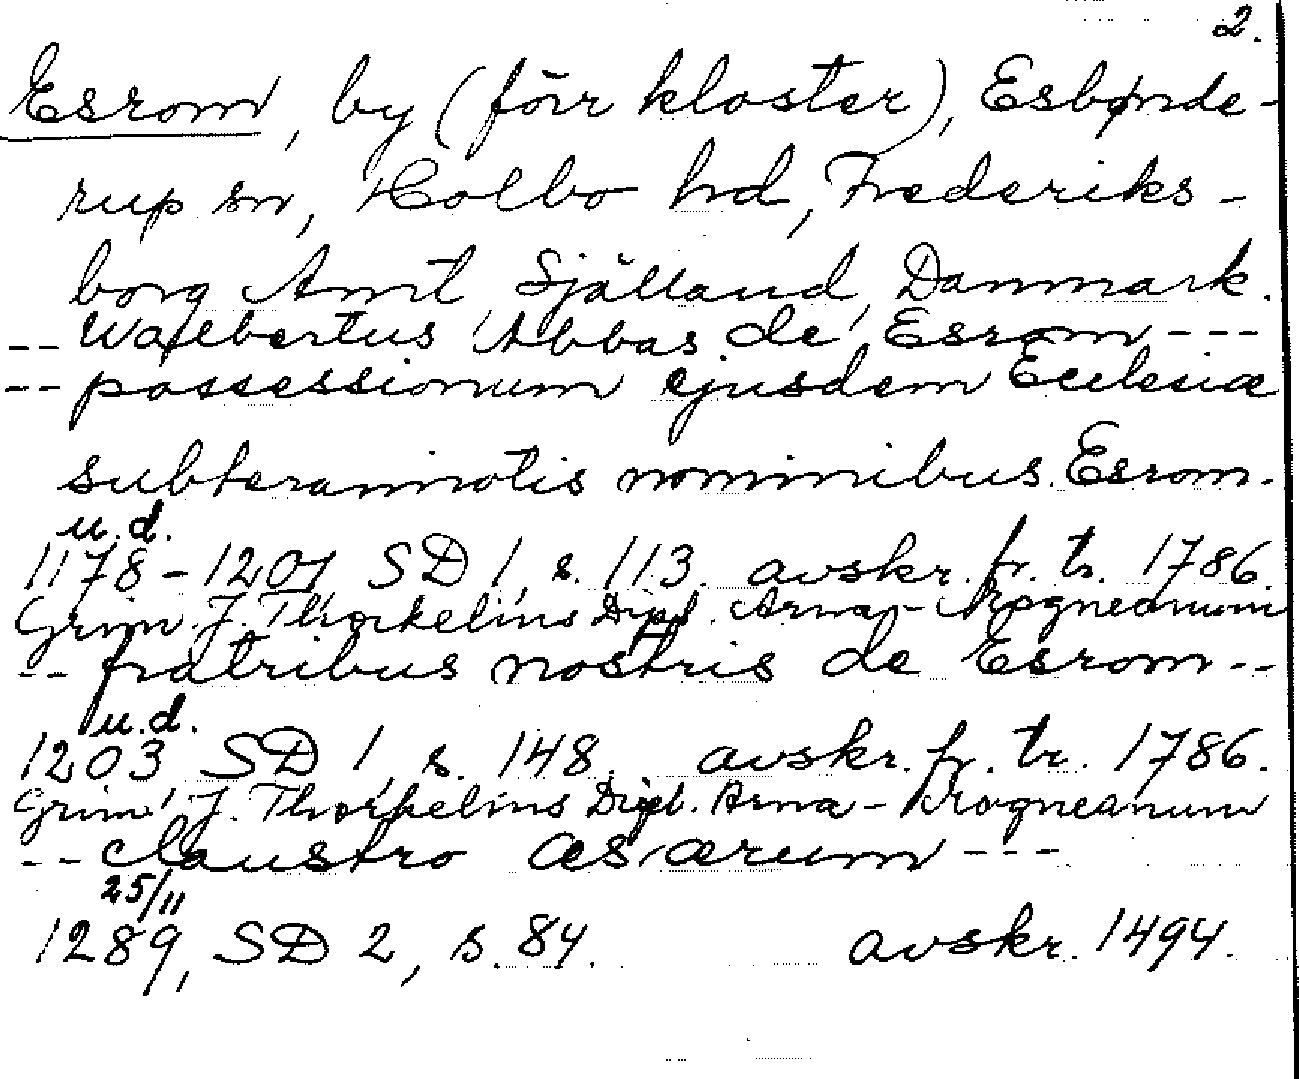 2.
Esrom, by (förr kloster), Esbønde-
rup sn, Holbo hd, Frederiks-
borg Amt Själland, Danmark.
-- Walbertus Abbas de Esrom ---
-- possessionum ejusdem Ecclesiæ
subterannotis nominibus. Esrom.
u.d.
1178-1201 SD 1, s. 113. avskr. fr. tr. 1786.
Grim. J. Thorkelins Dipl. Arna-Magneanum
-- fratribus nostris de Esrom --
u.d.
1203 SD 1, s. 148. avskr. fr. tr. 1786.
Grim. J. Thorkelins Dipl. Arna-Magneanum
-- claustro æsærum ---
25/11
1289, SD 2, s. 84. avskr. 1494.